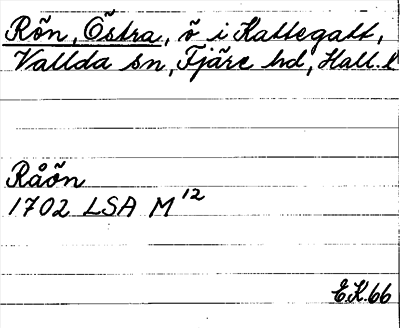 Rön, Östra, ö i Kattegatt,
Vallda sn, Fjäre hd, Hall. l
Råön
1702 LSA M 12
E.K. 66